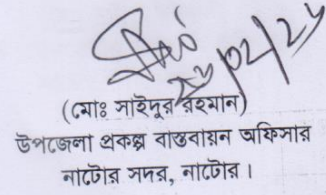 (মোঃ সাইদুর রহমান)
উপজেলা প্রকল্প বাস্তবায়ন অফিসার
নাটোর সদর, নাটোর।